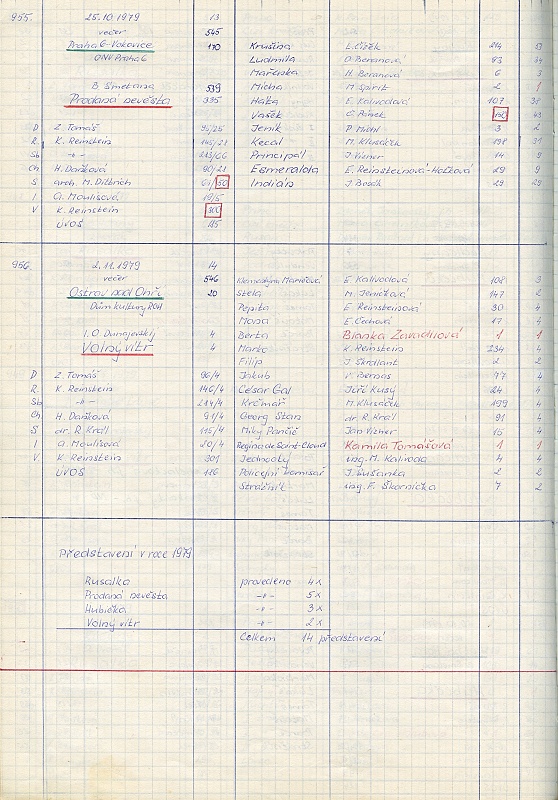 955. 25.10.1979 13
večer 545
Praha 6-Vokovice 170 Krušina L. Čížek 214 53
ONV Praha 6 Ludmila D. Beranová 93 34
Mařenka H. Beranová 6 3
B. Smetana 539 Mícha M. Špirit 2 1
Prodaná nevěsta 335 Háta E. Kalivodová 107 38
Vašek Č. Pánek 150 43
D Z. Tomáš 95/25 Jeník P. Michl 3 2
R. K. Reinstein 145/21 Kecal M. Klusáček 198 31
Sb -"- 213/66 Principál J. Vizner 14 9
Ch H. Daňková 90/21 Esmeralda E. Reinsteinová-Hočková 29 9
S arch. M. Dittrich 61/50 Indián J. Bosák 29 29
I A. Moulisová 19/5
V K. Reinstein 300
ÚVOŠ 185
956. 2.11.1979 14
večer 546 Klementýna Mariččová E. Kalivodová 108 3
Ostrov nad Ohří 20 Stela M. Jeníčková 147 2
Dům kultury ROH Pepita E. Reinsteinová 30 4
Mona E. Čechová 17 4
I.O. Dunajevskij 4 Berta Blanka Zavadilová 1 1
Volný vítr 4 Marko K. Reinstein 234 4
Filip J. Škrdlant 2 2
D Z. Tomáš 96/4 Jakub V. Bernas 77 4
R K. Reinstein 146/4 César Gal Jiří Kusý 24 4
Sb -"- 214/4 Krčmář M. Klusáček 199 4
Ch H. Daňková 91/4 Georg Stan dr. R. Král 91 4
S dr. R. Král 115/4 Miky Pančič Jan Vizner 15 4
I A. Moulisová 20/4 Regina de Saint-Cloud Kamila Tomášová 1 1
V K. Reinstein 301 Jednooký ing. M. Kalivoda 4 4
ÚVOŠ 186 Policejní komisař J. Sušanka 2 2
Strážník ing. F. Škornička 7 2
Představení v roce 1979
Rusalka provedeno 4x
Prodaná nevěsta -"- 5x
Hubička -"- 3x
Volný vítr -"- 2x
Celkem 14 představení